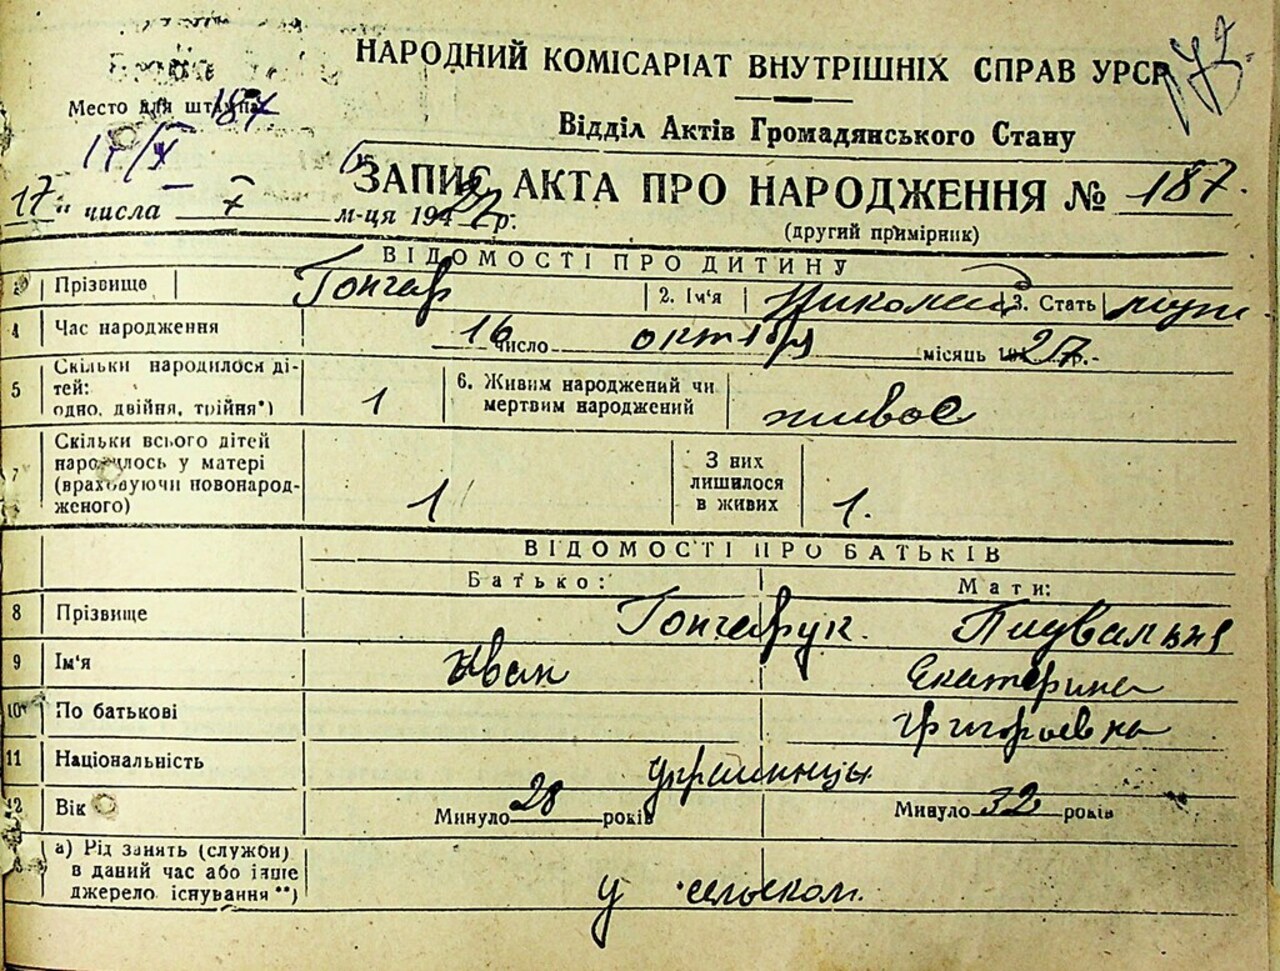 НАРОДНИЙ КОМІСАРІАТ ВНУТРІШНІХ СПРАВ УРСР
Место для штампа
187
Відділ Актів Громадянського Стану
ЗАПИС АКТА ПРО НАРОДЖЕННЯ № 187.
17 " числа X м-ця 194 р.
(другий примірник)
ВІДОМОСТІ ПРО ДИТИНУ
Прізвище Гончар 2. Ім'я Николай 3. Стать муж.
4 Час народження 16 число октября місяць 27 р.-
5 Скільки народилося ді-
тей:
одно, двійня, трійня*) 1
6. Живим народжений чи
мертвим народжений живое
7 Скільки всього дітей
народилось у матері
(враховуючи новонарод-
женого) 1
З них
лишилося
в живих 1.
ВІДОМОСТІ ПРО БАТЬКІВ
Батько: Мати:
8 Прізвище Гончарук.
9 Ім'я Иван Екатерина
10 По батькові Григорьевна
11 Національність украинцы
12 Вік Минуло 28 років Минуло 32 років
а) Рід занять (служби)
в даний час або інше
джерело існування **) у сельском.